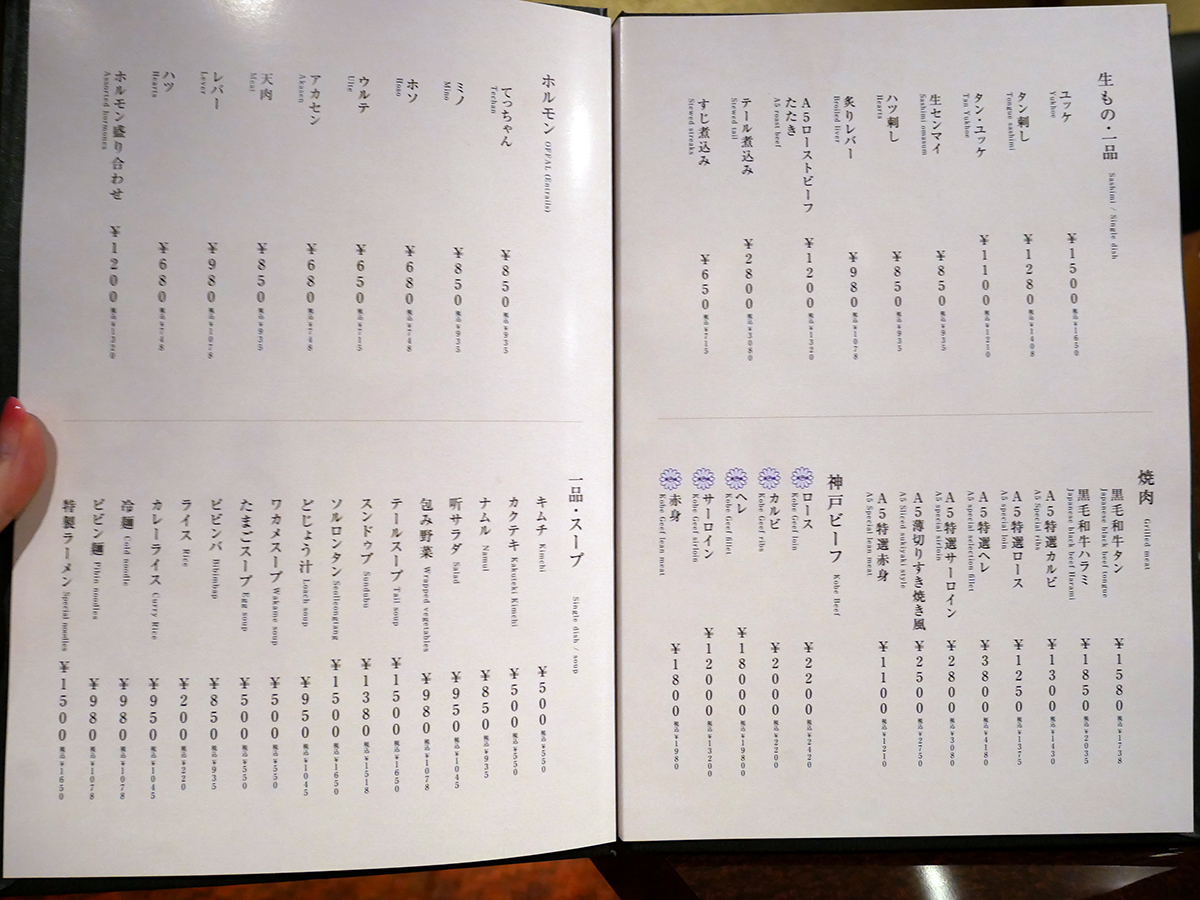 生もの・一品 Sashimi / Single dish
ユッケ ¥1500 税込¥1650
Yukhoe
タン刺し ¥1280 税込¥1408
Tongue sashimi
タン・ユッケ ¥1100 税込¥1210
Tan Yukhoe
生センマイ ¥850 税込¥935
Sashimi omasum
ハツ刺し ¥850 税込¥935
Hearts
炙りレバー ¥980 税込¥1078
Broiled liver
A5ローストビーフ
たたき ¥1200 税込¥1320
A5 roast beef
テール煮込み ¥2800 税込¥3080
Stewed tail
すじ煮込み ¥650 税込¥715
Stewed streaks
焼肉 Grilled meat
黒毛和牛タン ¥1580 税込¥1738
Japanese black beef tongue
黒毛和牛ハラミ ¥1850 税込¥2035
Japanese black beef Harami
A5特選カルビ ¥1300 税込¥1430
A5 Special ribs
A5特選ロース ¥1250 税込¥1375
A5 Special loin
A5特選ヘレ ¥3800 税込¥4180
A5 Special selection fillet
A5特選サーロイン ¥2800 税込¥3080
A5 special sirloin
A5薄切りすき焼き風 ¥2500 税込¥2750
A5 Sliced sukiyaki style
A5特選赤身 ¥1100 税込¥1210
A5 Special lean meat
神戸ビーフ Kobe Beef
ロース ¥2200 税込¥2420
Kobe Geef loin
カルビ ¥2000 税込¥2200
Kobe Geef ribs
ヘレ ¥18000 税込¥19800
Kobe Geef fillet
サーロイン ¥12000 税込¥13200
Kobe Geef sirloin
赤身 ¥1800 税込¥1980
Kobe Geef lean meat
ホルモン OFFAL (Entrails)
てっちゃん ¥850 税込¥935
Tecchan
ミノ ¥850 税込¥935
Mino
ホソ ¥680 税込¥748
Hoso
ウルテ ¥650 税込¥715
Ulte
アカセン ¥680 税込¥748
Akasen
天肉 ¥850 税込¥935
Meat
レバー ¥980 税込¥1078
Lever
ハツ ¥680 税込¥748
Hearts
ホルモン盛り合わせ ¥1200 税込¥1320
Assorted hormones
一品・スープ Single dish / soup
キムチ Kimchi ¥500 税込¥550
カクテキ Kakuteki Kimchi ¥500 税込¥550
ナムル Namul ¥850 税込¥935
听サラダ Salad ¥950 税込¥1045
包み野菜 Wrapped vegetables ¥980 税込¥1078
テールスープ Tail soup ¥1500 税込¥1650
スンドゥブ Sundubu ¥1380 税込¥1518
ソルロンタン Seolleongtang ¥1500 税込¥1650
どじょう汁 Loach soup ¥950 税込¥1045
ワカメスープ Wakame soup ¥500 税込¥550
たまごスープ Egg soup ¥500 税込¥550
ビビンバ Bibimbap ¥850 税込¥935
ライス Rice ¥200 税込¥220
カレーライス Curry Rice ¥950 税込¥1045
冷麺 Cold noodle ¥980 税込¥1078
ビビン麺 Pibin noodles ¥980 税込¥1078
特製ラーメン Special noodles ¥1500 税込¥1650